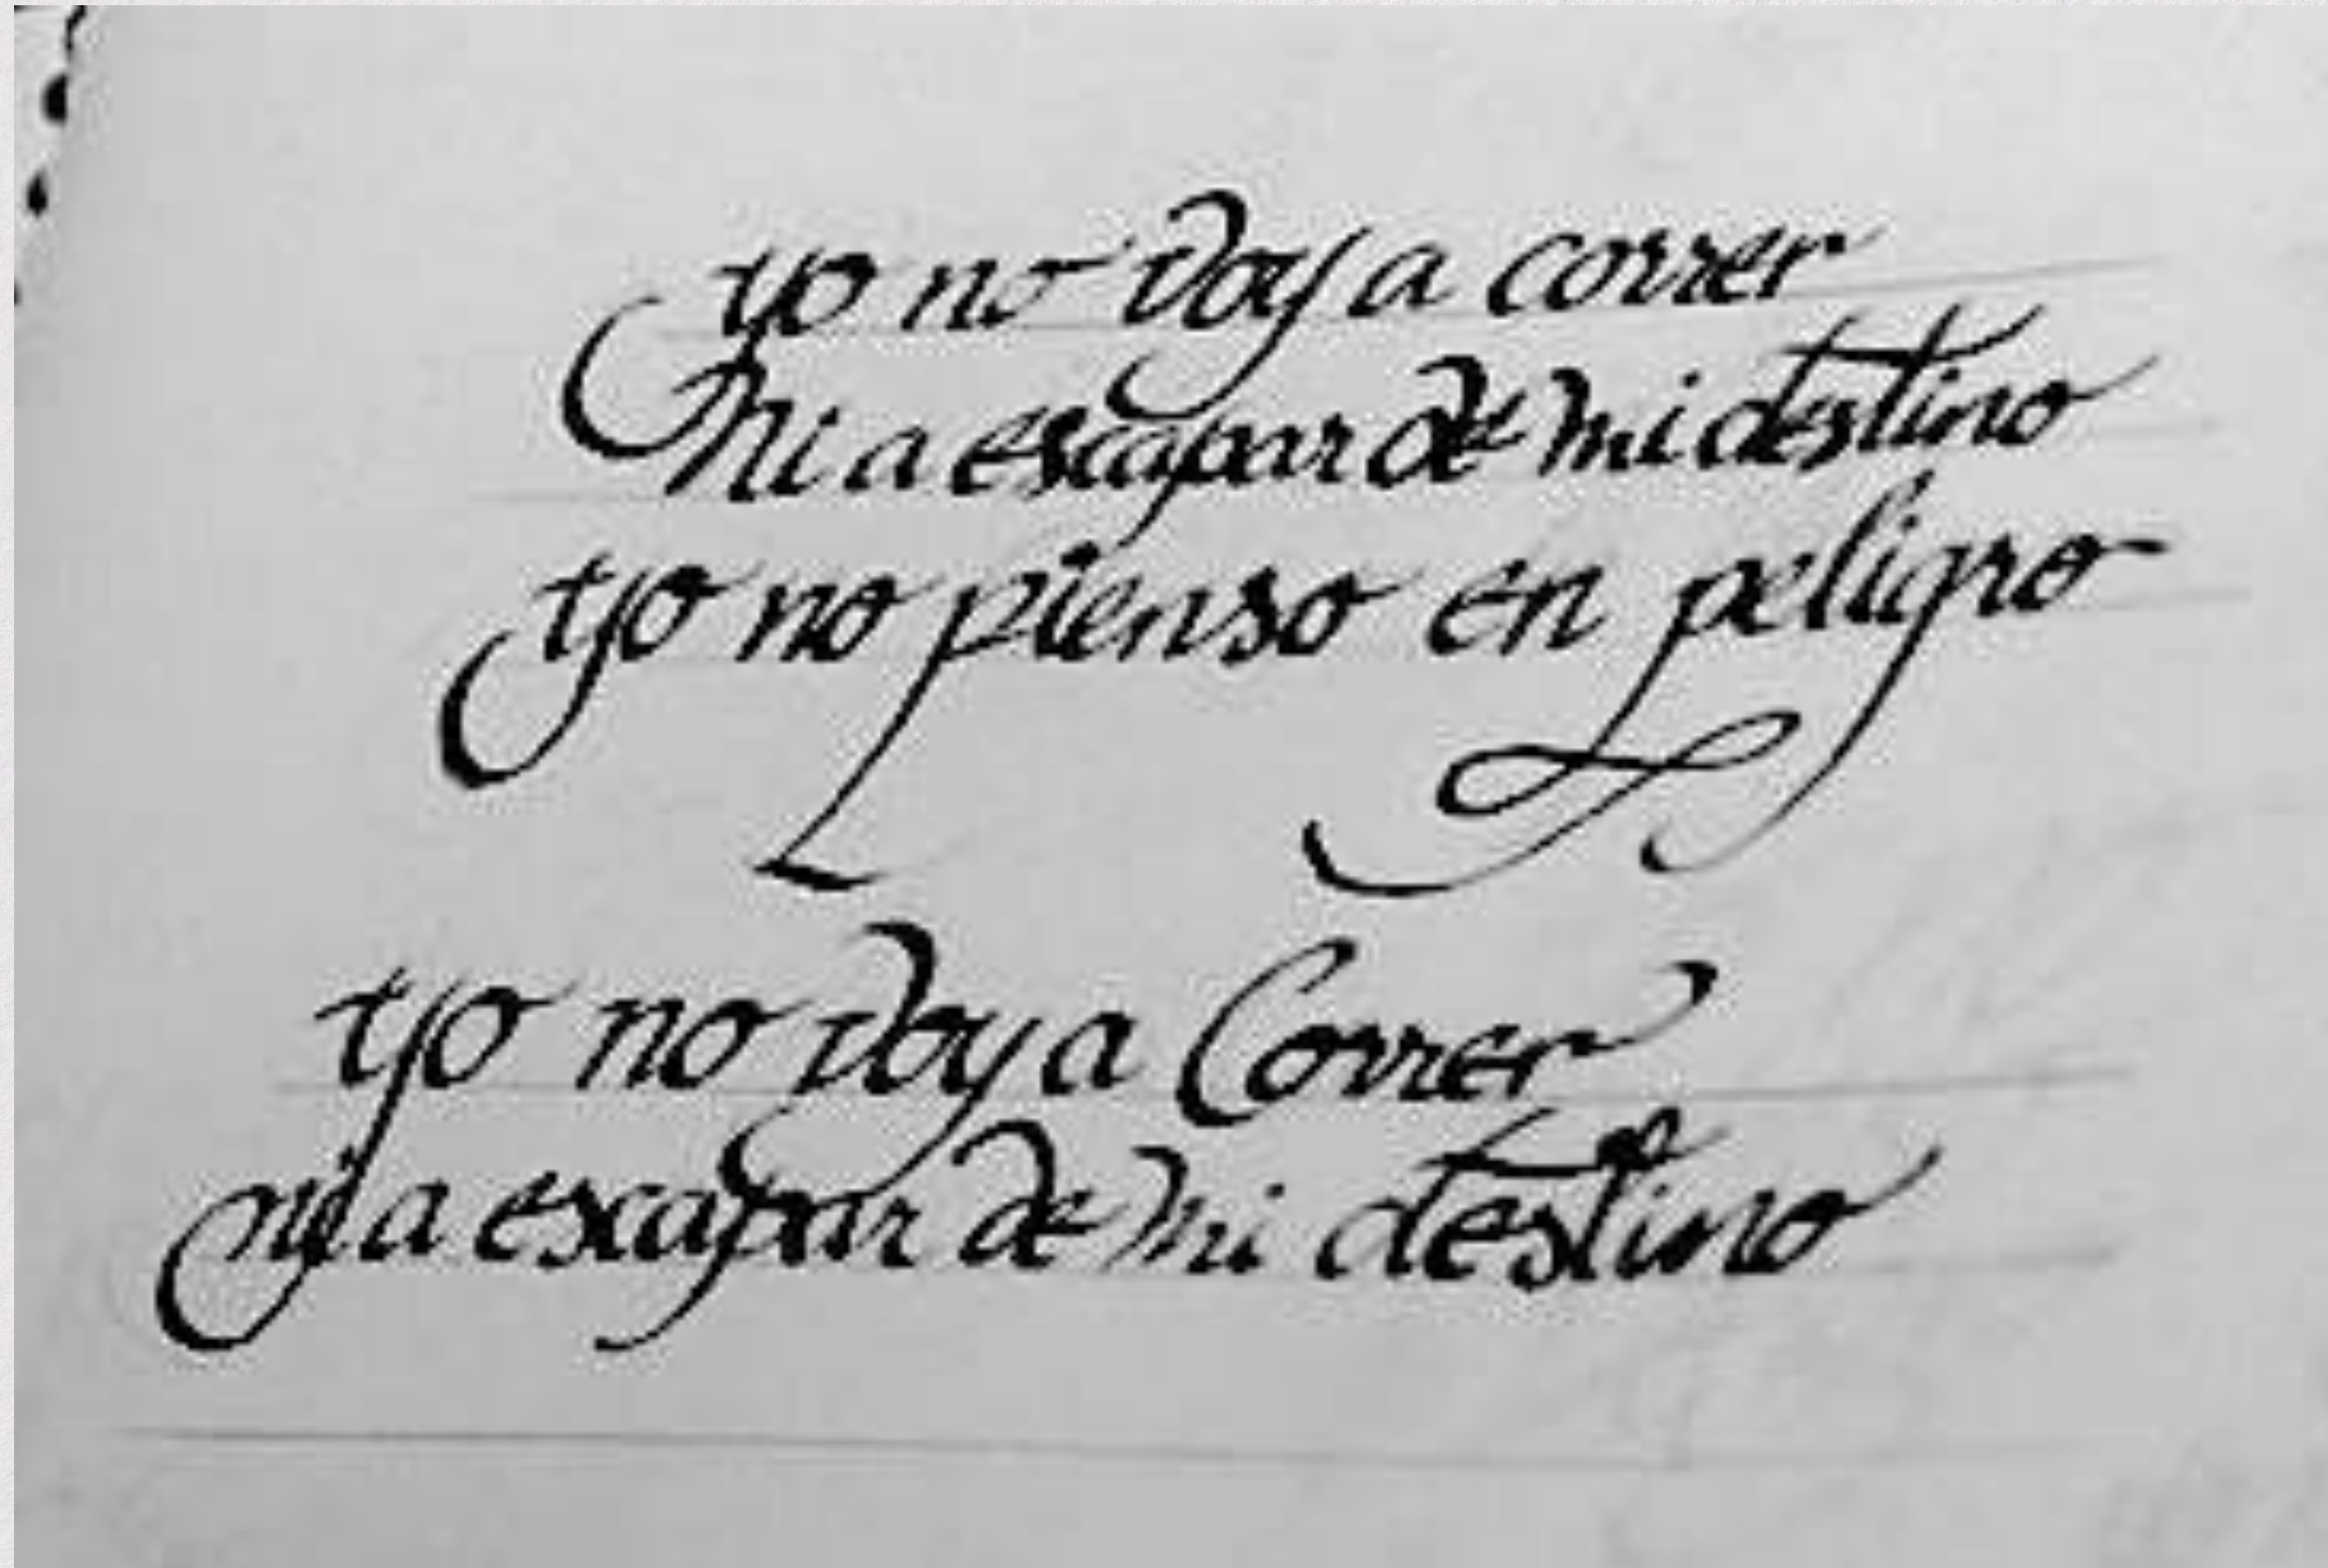 yo no voy a correr
Ni a escapar de mi destino
yo no pienso en peligro
yo no voy a Correr
ni a escapar de mi destino